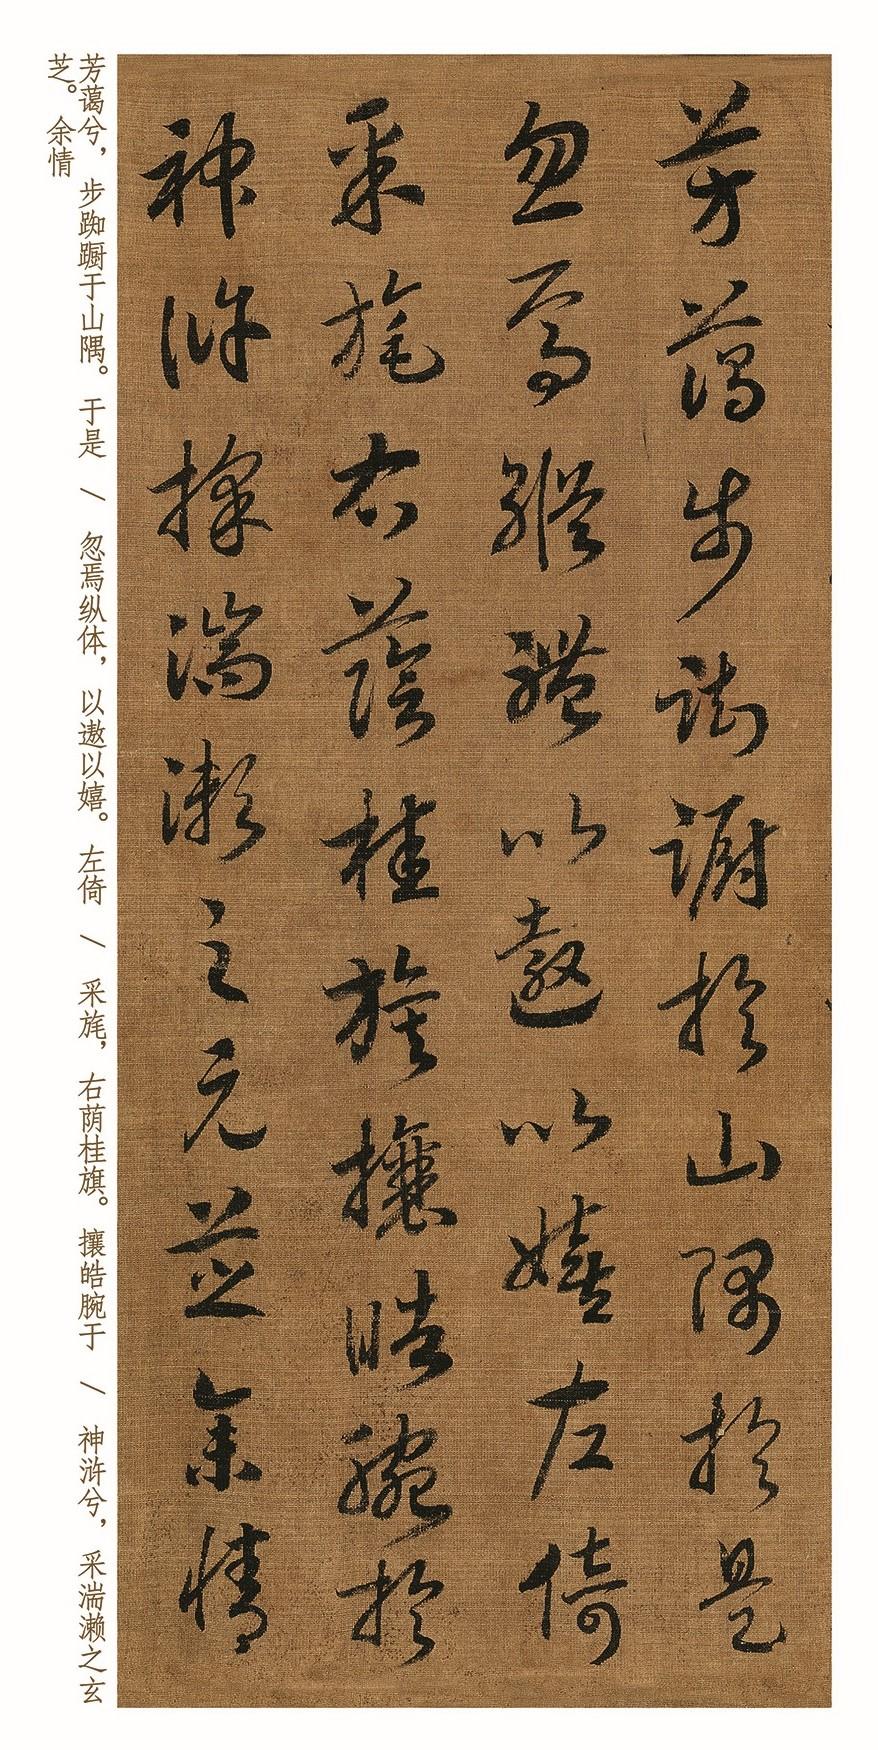 芳蔼步踟蹰於山隅於是
忽焉纵體以遨以嬉左倚
采旄右蔭桂旗攘皓腕於
神浒採湍濑之元芝余情
芳蔼兮，步踟蹰于山隅。于是 / 忽焉纵体，以遨以嬉。左倚 / 采旄，右荫桂旗。攘皓腕于 / 神浒兮，采湍濑之玄
芝。余情